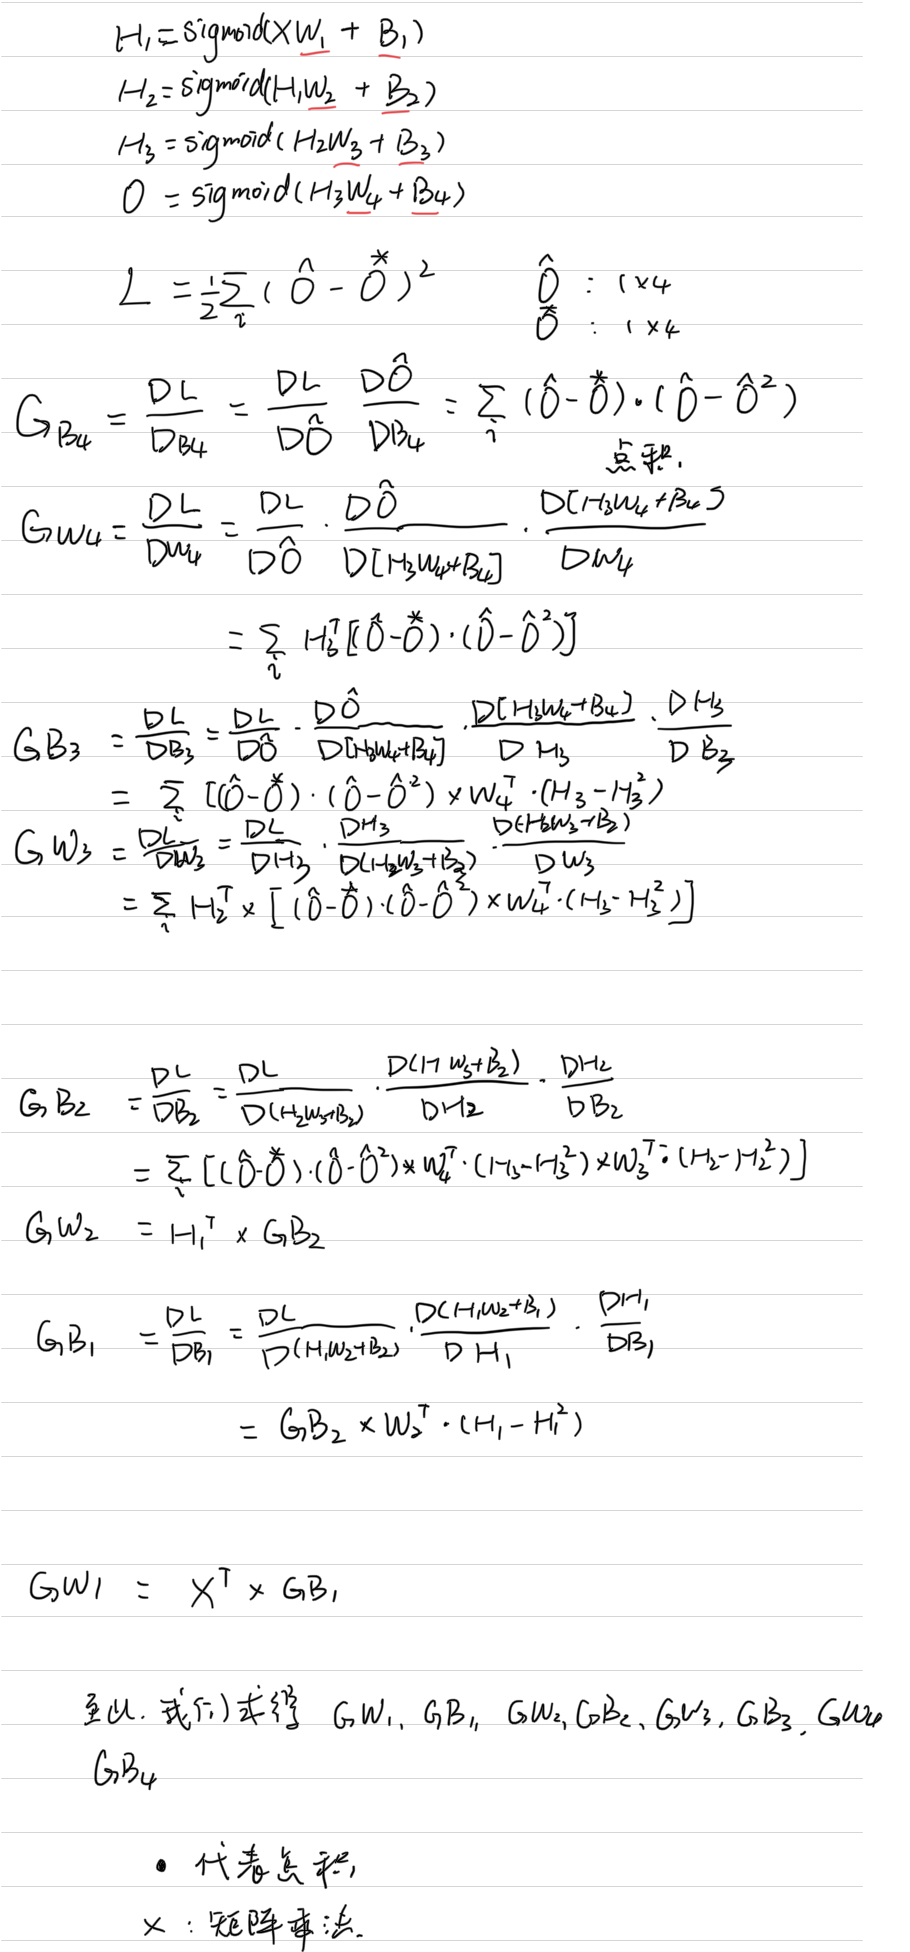 H₁ = sigmoid(XW₁ + B₁)
H₂ = sigmoid(H₁W₂ + B₂)
H₃ = sigmoid(H₂W₃ + B₃)
O = sigmoid(H₃W₄ + B₄)
L = ½ Σᵢ (Ô - Ǒ*)² Ô : 1×4
O* : 1×4
G_B₄ = DL/DB₄ = DL/DÔ DÔ/DB₄ = Σᵢ (Ô - O*)·(Ô - Ô²)
点积.
GW₄ = DL/DW₄ = DL/DÔ · DÔ/D[H₃W₄+B₄] · D[H₃W₄+B₄]/DW₄
= Σᵢ H₃ᵀ[(Ô - O*)·(Ô - Ô²)]
GB₃ = DL/DB₃ = DL/DÔ · DÔ/D[H₃W₄+B₄] · D[H₃W₄+B₄]/DH₃ · DH₃/DB₃
= Σᵢ [(Ô - O*)·(Ô - Ô²) × W₄ᵀ·(H₃ - H₃²)
GW₃ = DL/DW₃ = DL/DH₃ · DH₃/D(H₂W₃+B₃) · D(H₂W₃+B₂)/DW₃
= Σᵢ H₂ᵀ × [(Ô - O*)·(Ô - Ô²) × W₄ᵀ·(H₃ - H₃²)]
GB₂ = DL/DB₂ = DL/D(H₂W₃+B₂) · D(H W₃+B₂)/DH₂ · DH₂/DB₂
= Σᵢ [(Ô - O*)·(Ô - Ô²) × W₄ᵀ·(H₃ - H₃²) × W₃ᵀ·(H₂ - H₂²)]
GW₂ = H₁ᵀ × GB₂
GB₁ = DL/DB₁ = DL/D(H₁W₂+B₂) · D(H₁W₂+B₁)/DH₁ · DH₁/DB₁
= GB₂ × W₂ᵀ·(H₁ - H₁²)
GW₁ = Xᵀ × GB₁
至此. 我们求得 GW₁、GB₁, GW₂, GB₂、GW₃, GB₃、GW₄
GB₄
• 代表点积,
× : 矩阵乘法.